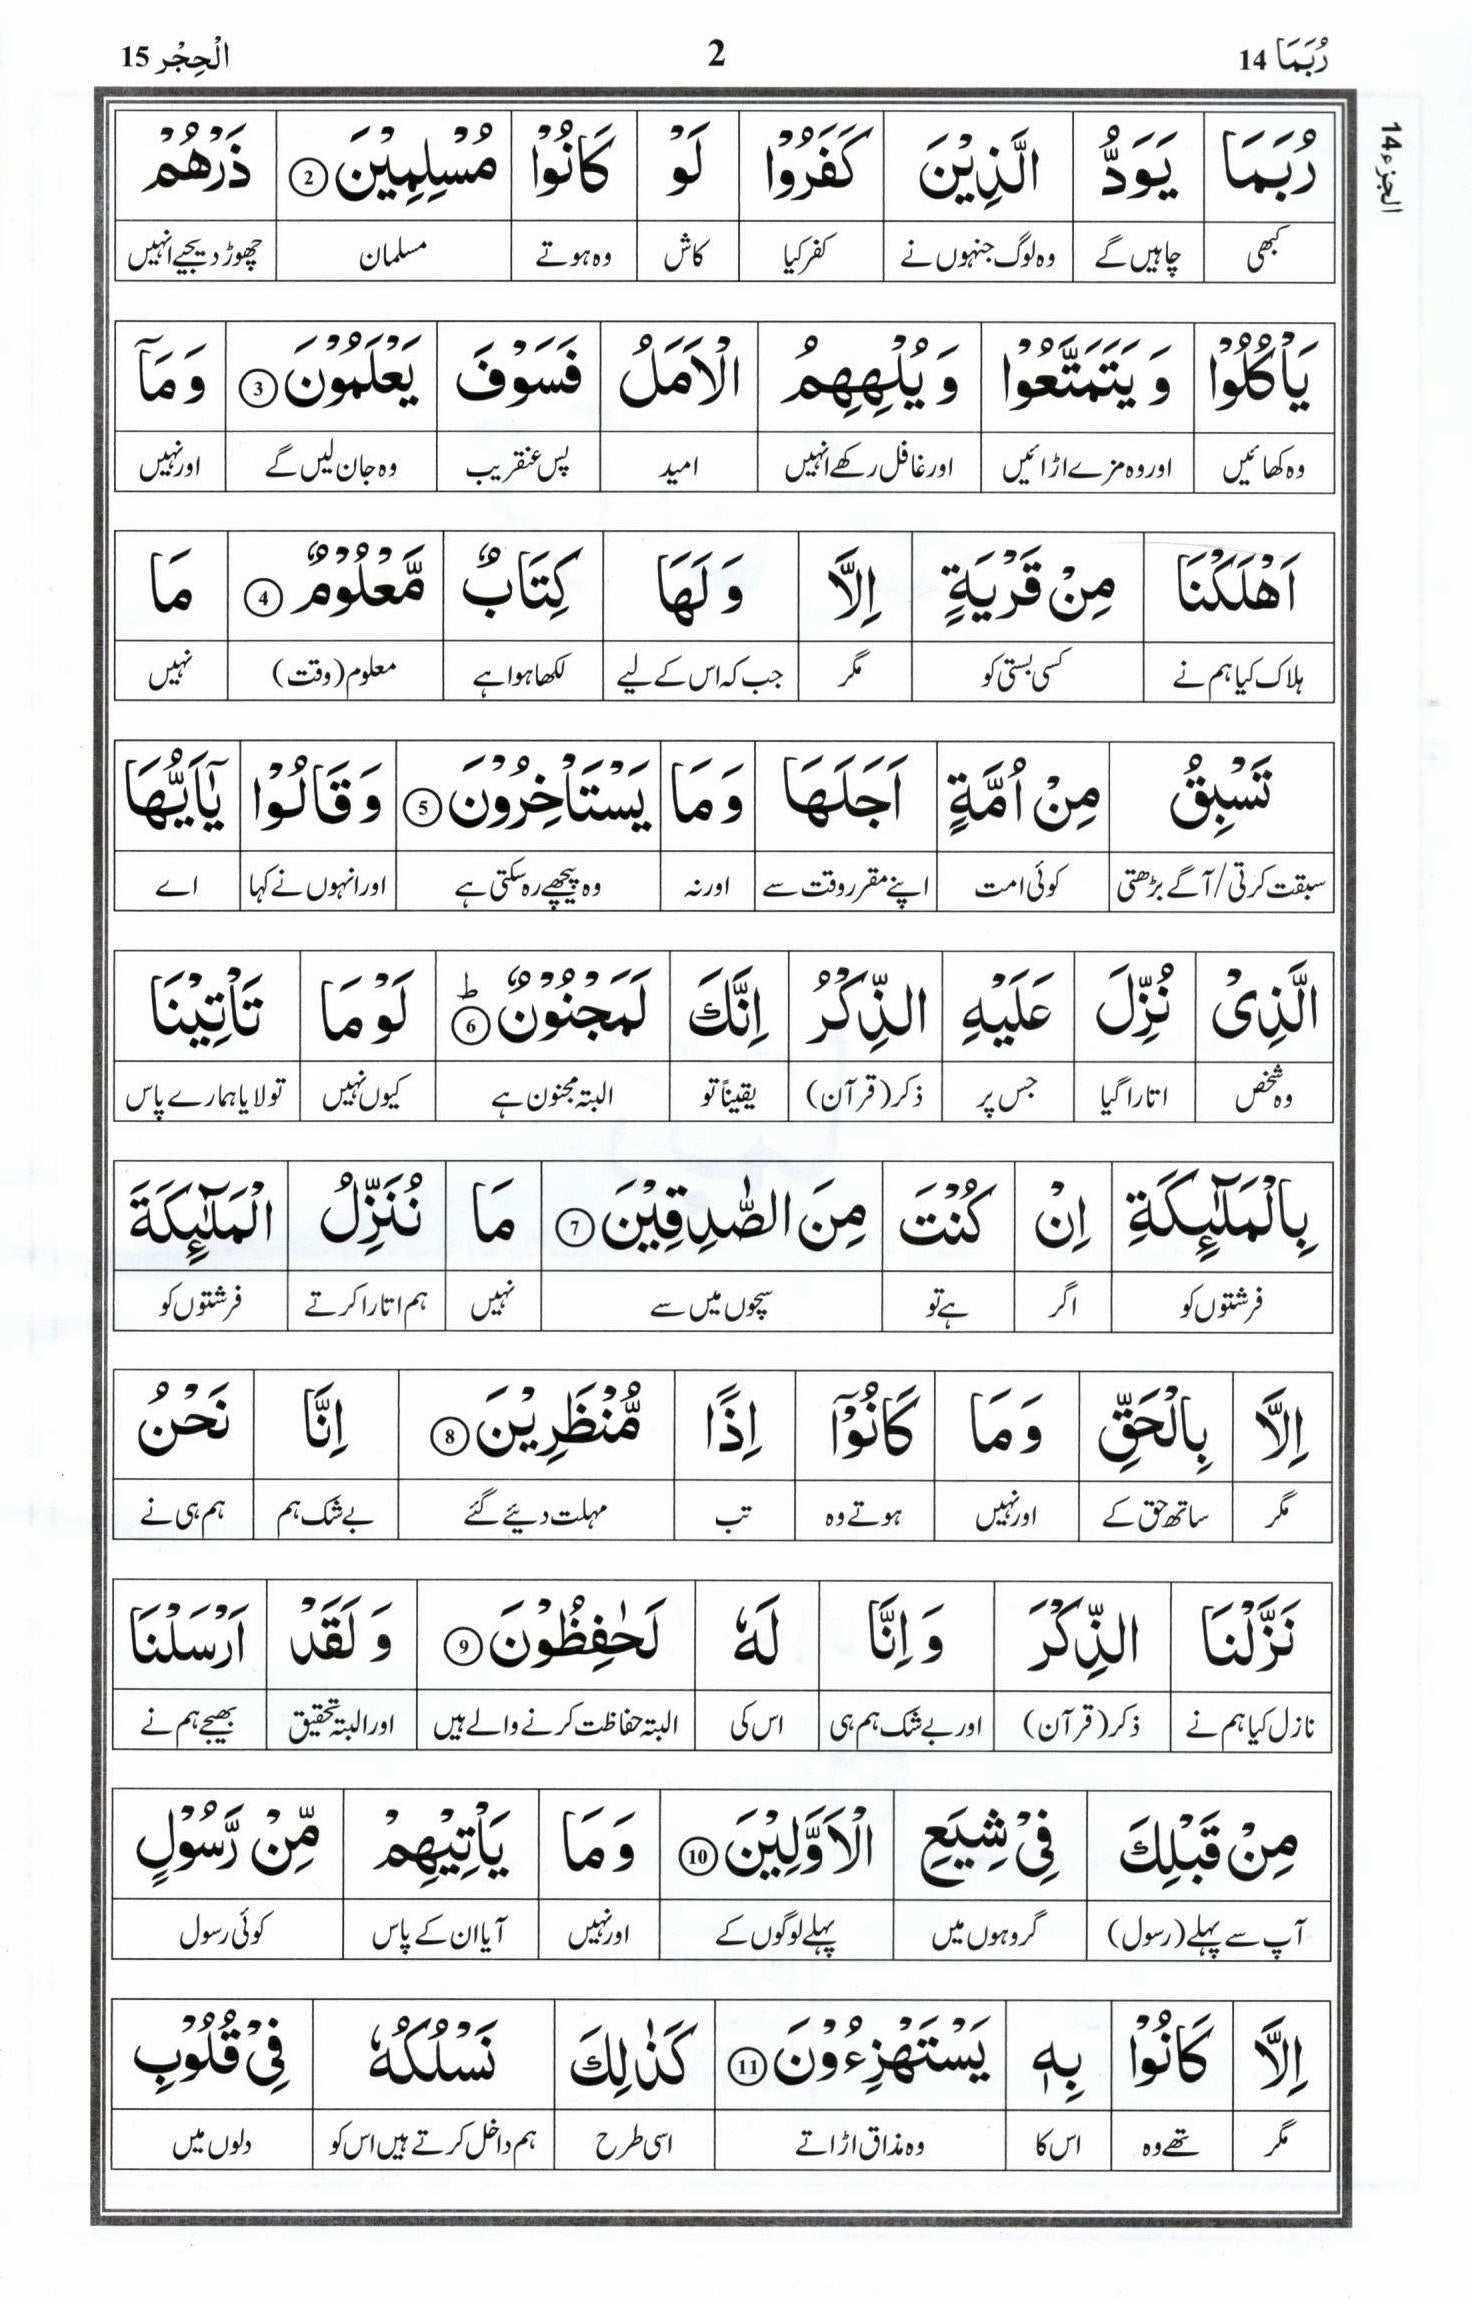 رُبَمَا 14 2 الْحِجْر 15
الجزء 14
رُبَمَا يَوَدُّ الَّذِيْنَ كَفَرُوْا لَوْ كَانُوْا مُسْلِمِيْنَ 2 ذَرْهُمْ
کبھی چاہیں گے وہ لوگ جنہوں نے کفر کیا کاش وہ ہوتے مسلمان چھوڑ دیجیے انہیں
يَاْكُلُوْا وَ يَتَمَتَّعُوْا وَ يُلْهِهِمُ الْاَمَلُ فَسَوْفَ يَعْلَمُوْنَ 3 وَ مَآ
وہ کھائیں اور وہ مزے اڑائیں اور غافل رکھے انہیں امید پس عنقریب وہ جان لیں گے اور نہیں
اَهْلَكْنَا مِنْ قَرْيَةٍ اِلَّا وَ لَهَا كِتَابٌ مَّعْلُوْمٌ 4 مَا
ہلاک کیا ہم نے کسی بستی کو مگر جب کہ اس کے لیے لکھا ہوا ہے معلوم (وقت) نہیں
تَسْبِقُ مِنْ اُمَّةٍ اَجَلَهَا وَ مَا يَسْتَاْخِرُوْنَ 5 وَ قَالُوْا يٰٓاَيُّهَا
سبقت کرتی / آگے بڑھتی کوئی امت اپنے مقرر وقت سے اور نہ وہ پیچھے رہ سکتی ہے اور انہوں نے کہا اے
الَّذِىْ نُزِّلَ عَلَيْهِ الذِّكْرُ اِنَّكَ لَمَجْنُوْنٌ ؕ 6 لَوْ مَا تَاْتِيْنَا
وہ شخص اتارا گیا جس پر ذکر (قرآن) یقیناً تو البتہ مجنون ہے کیوں نہیں تو لایا ہمارے پاس
بِالْمَلٰٓئِكَةِ اِنْ كُنْتَ مِنَ الصّٰدِقِيْنَ 7 مَا نُنَزِّلُ الْمَلٰٓئِكَةَ
فرشتوں کو اگر ہے تو سچوں میں سے نہیں ہم اتارا کرتے فرشتوں کو
اِلَّا بِالْحَقِّ وَ مَا كَانُوْٓا اِذًا مُّنْظَرِيْنَ 8 اِنَّا نَحْنُ
مگر ساتھ حق کے اور نہیں ہوتے وہ تب مہلت دیئے گئے بے شک ہم ہم ہی نے
نَزَّلْنَا الذِّكْرَ وَ اِنَّا لَهٗ لَحٰفِظُوْنَ 9 وَ لَقَدْ اَرْسَلْنَا
نازل کیا ہم نے ذکر (قرآن) اور بے شک ہم ہی اس کی البتہ حفاظت کرنے والے ہیں اور البتہ تحقیق بھیجے ہم نے
مِنْ قَبْلِكَ فِىْ شِيَعِ الْاَوَّلِيْنَ 10 وَ مَا يَاْتِيْهِمْ مِّنْ رَّسُوْلٍ
آپ سے پہلے (رسول) گروہوں میں پہلے لوگوں کے اور نہیں آیا ان کے پاس کوئی رسول
اِلَّا كَانُوْا بِهٖ يَسْتَهْزِءُوْنَ 11 كَذٰلِكَ نَسْلُكُهٗ فِىْ قُلُوْبِ
مگر تھے وہ اس کا وہ مذاق اڑاتے اسی طرح ہم داخل کرتے ہیں اس کو دلوں میں